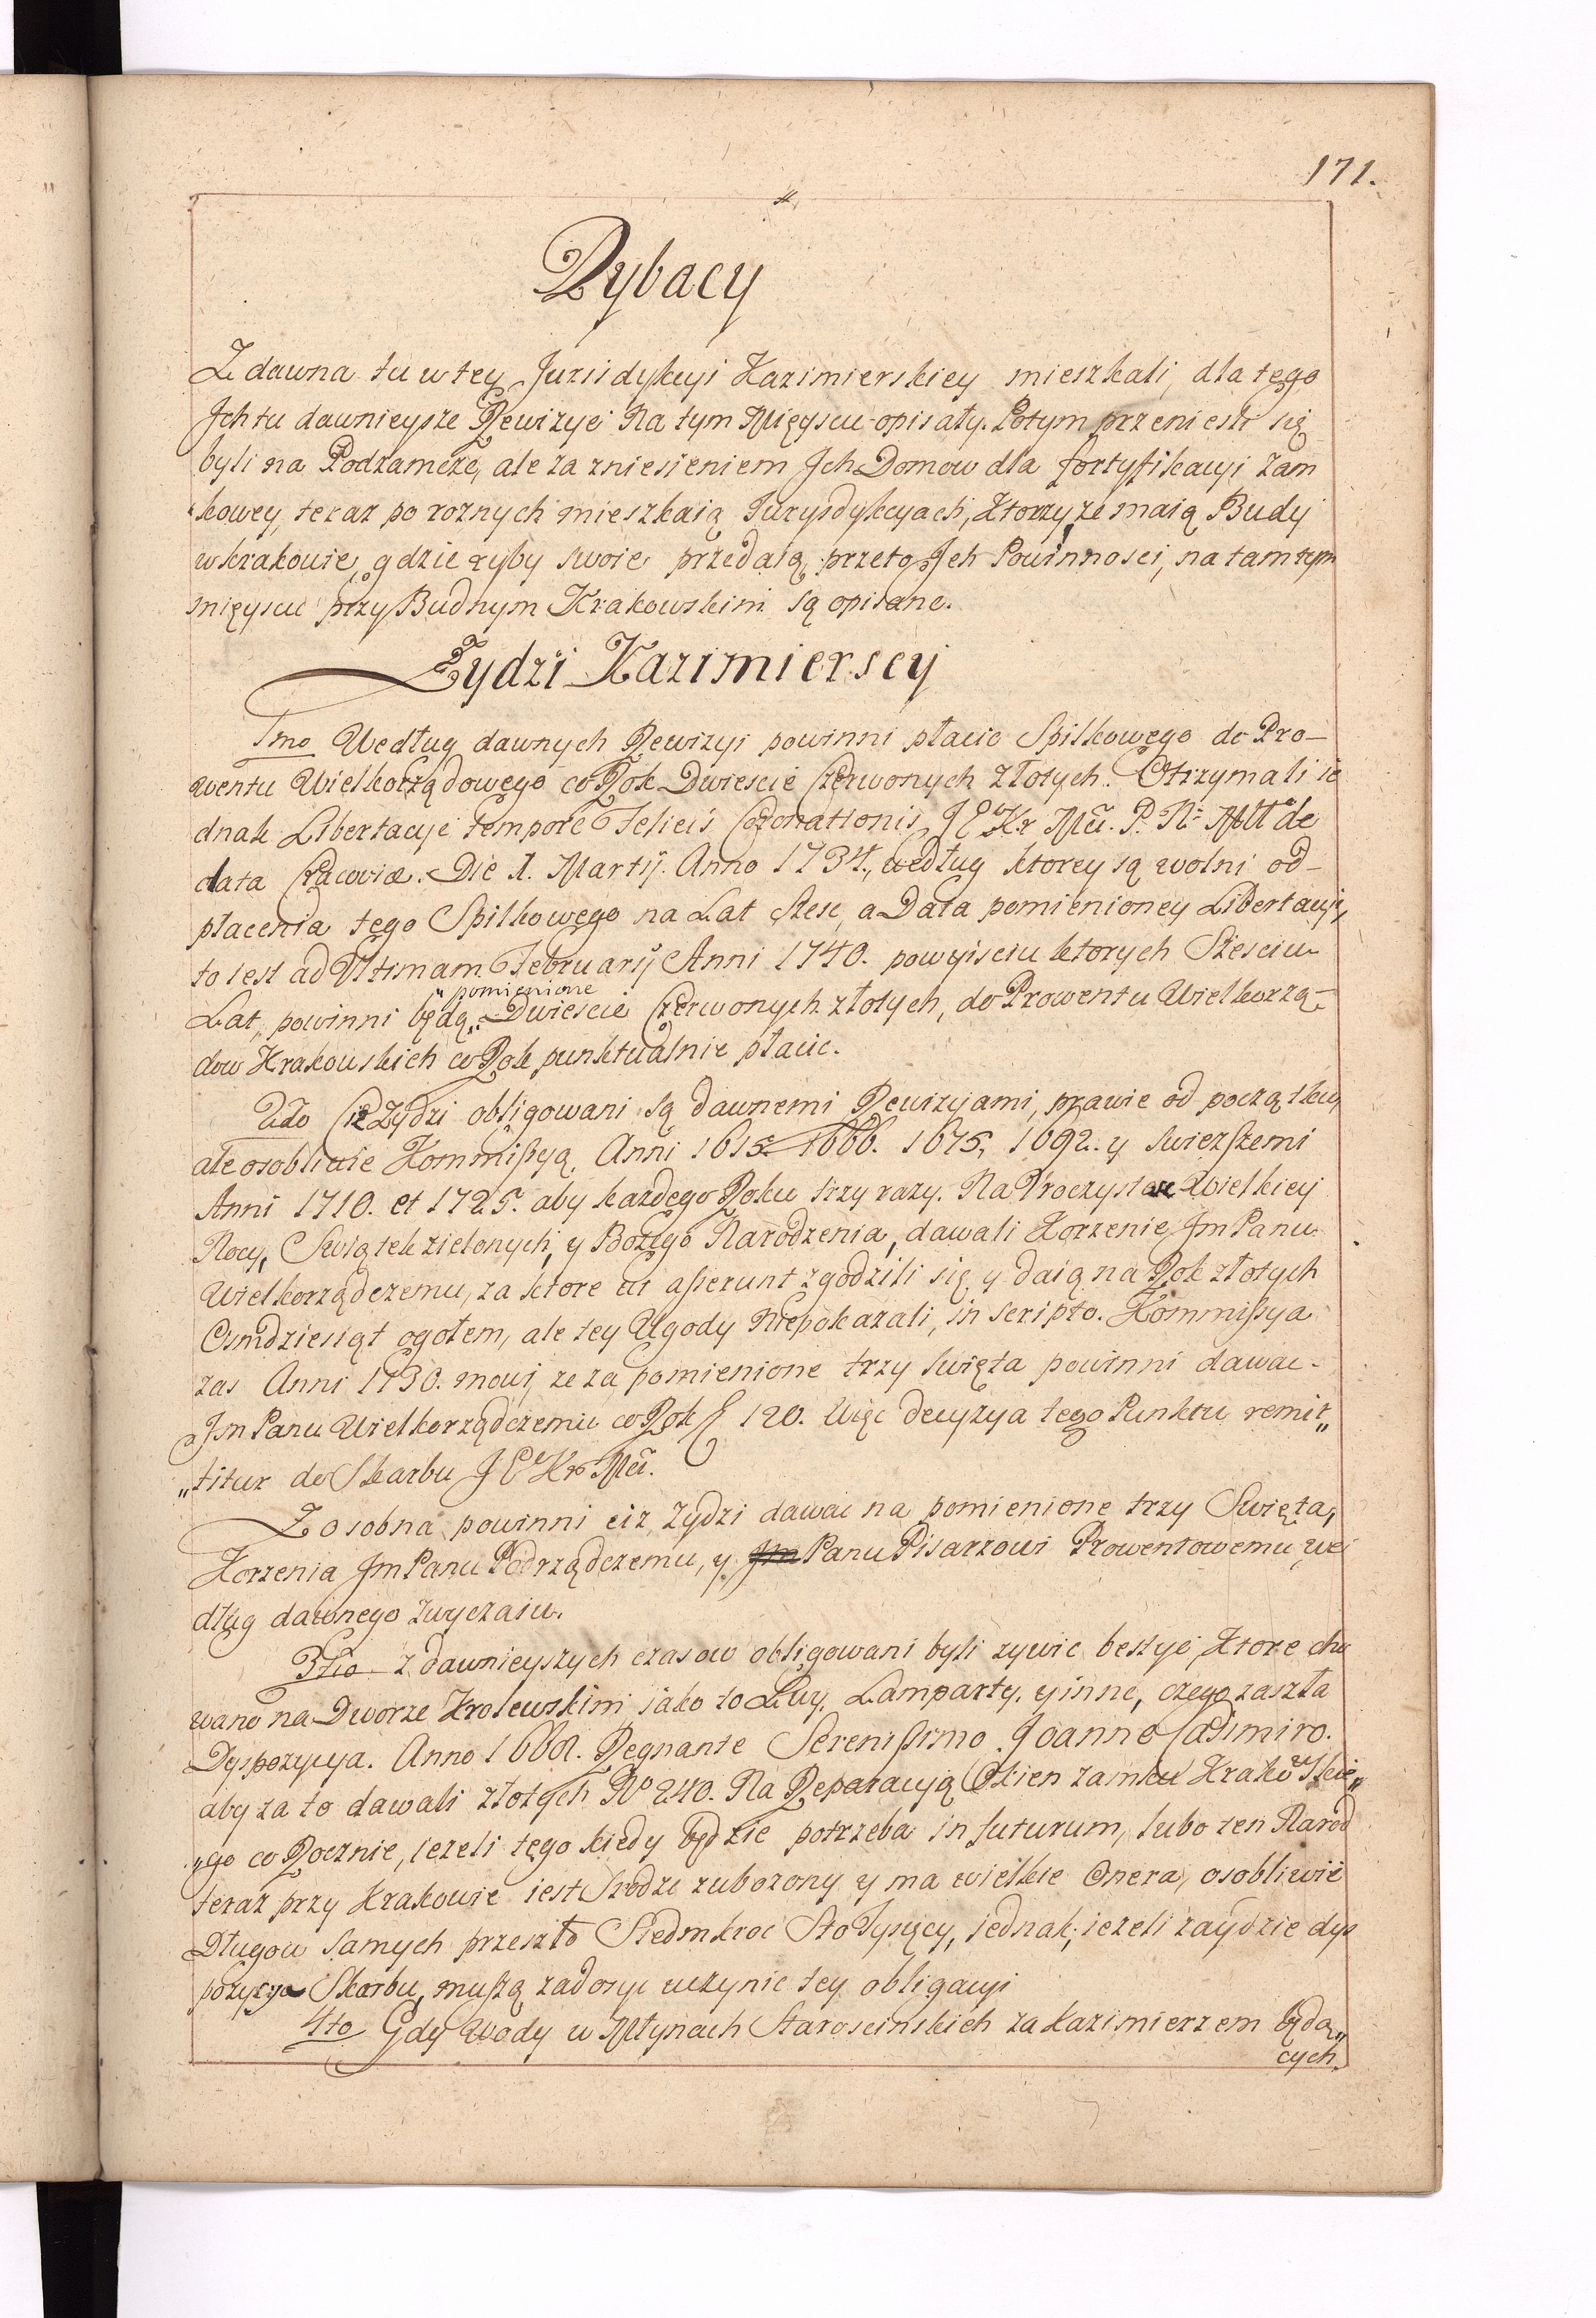 171.
Rybacy
Z dawna tu w tey Jurisdykcyi Kazimierskiey mieszkali, dla tego
Jch tu dawnieysze Rewizye Na tym Mięyscu opisały. Potym przeniesli się
byli na Podzamcze, ale za zniesieniem Jch Domow dla fortyfikacyi Zam
kowey, teraz po roznych mieszkaią Jurysdykcyach, Ktorzy ze maią Budy
w Krakowie, gdzie ryby swoie przedaią, przeto Jch Powinnosci, na tamtym
mięyscu przy Budnym Krakowskim są opisane.
Zydzi Kazimierscy
1mo Według dawnych Rewizyi powinni płacic Spilkowego do Pro-
wentu Wielkorządowego co Rok Dwiescie Czerwonych Złotych. Otrzymali ie
dnak Libertacye tempore Felicis Coronationis J E Kr Mci. P. N. Mtt de
data Cracoviæ. Die 1. Martij. Anno 1734., według ktorey są wolni od-
płacenia tego Spilkowego na Lat Szesc, a Data pomienioney Libertacyi,
to iest ad Ultimam Februarij Anni 1740. po wyisciu ktorych Szesciu
„pomienione
Lat, powinni będą „Dwiescie Czerwonych złotych, do Prowentu Wielkorzą-
dow Krakowskich co Rok punktualnie płacic.
2do Ciz Zydzi obligowani są dawnemi Rewizyami, prawie od początku,
ale osobliwie Kommissyą Anni 1615. 1666. 1675, 1692. y swiezszemi
Anni 1710. et 1725. aby kazdego Roku trzy razy. Na Uroczystosc Wielkiey
Nocy, Swiątek zielonych, y Bozego Narodzenia, dawali Korzenie Jm Panu
Wielkorządczemu, za ktore ut asserunt zgodzili się y daią na Rok złotych
Osmdziesiąt ogołem, ale tey Ugody Niepokazali, in scripto. Kommissya
zas Anni 1730. mowi ze za pomienione trzy swięta powinni dawac
Jm Panu Wielkorządczemu co Rok f 120. Więc decyzya tego Punktu remit„
„titur do Skarbu J E Kr Mci.
Z osobna powinni ciz Zydzi dawac na pomienione trzy Swięta,
Korzenia Jm Panu Podrządczemu, y Jm Panu Pisarzowi Prowentowemu, we
dług dawnego zwyczaiu.
3tio z dawnieyszych czasow obligowani byli zywic bestye, Ktore cho
wano na Dworze Krolewskim iako to Lwy, Lamparty, y inne, czego zaszła
Dyspozycya. Anno 1661. Regnante Serenissimo Joanne Casimiro.
aby za to dawali złotych No 240. Na Reparacyą Okien zamku Krakowskie„
„go co Rocznie, iezeli tego kiedy będzie potrzeba in futurum, lubo ten Narod
teraz przy Krakowie iest srodze zubozony y ma wielkie Onera, osobliwie
Długow samych przeszło Siedmkroc Sto Tysięcy, iednak, iezeli zaydzie dys
pozycya Skarbu, muszą zadosyc uczynic tey obligacyi
4to Gdy Wody w Młynach Staroscinskich za Kazimierzem będą„
cych.